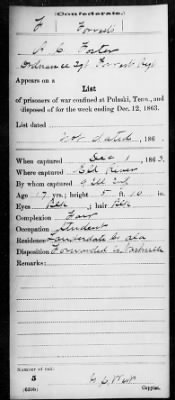 (Confederate.)
F Forrest's
A. C. Foster
Ordnance Sgt Forrest's Regt
Appears on a
List
of prisoners of war confined at Pulaski, Tenn., and
disposed of for the week ending Dec. 12, 1863.
List dated
Not dated, 186 .
When captured Dec 1, 1863.
Where captured Elk River
By whom captured 9 Ill Inf
Age 17 yrs.; height 5 ft. 10 in.
Eyes Blk; hair Blk
Complexion Fair
Occupation Student
Residence Lauderdale Co Ala
Disposition Forwarded to Nashville
Remarks:
Number of roll:
5
(639b)
Copyist.